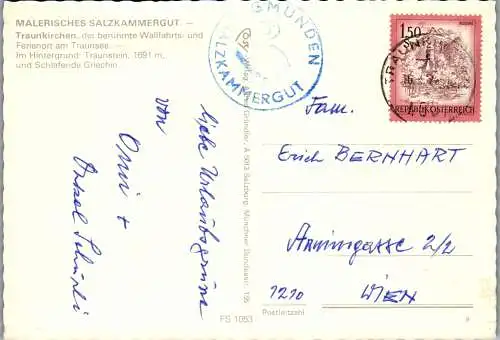 MALERISCHES SALZKAMMERGUT —
Traunkirchen, der berühmte Wallfahrts- und
Ferienort am Traunsee. —
Im Hintergrund: Traunstein, 1691 m,
und Schlafende Griechin.
GMUNDEN
SALZKAMMERGUT
1.50
REPUBLIK ÖSTERREICH
TRAUNK
liebe Urlaubsgrüsse
von
Omi +
Onkel
Gründler, A 5013 Salzburg, Münchner Bundesstr. 196
FS 1053
Fam.
Erich BERNHART
Arminigasse 2/2
1210 WIEN
Postleitzahl